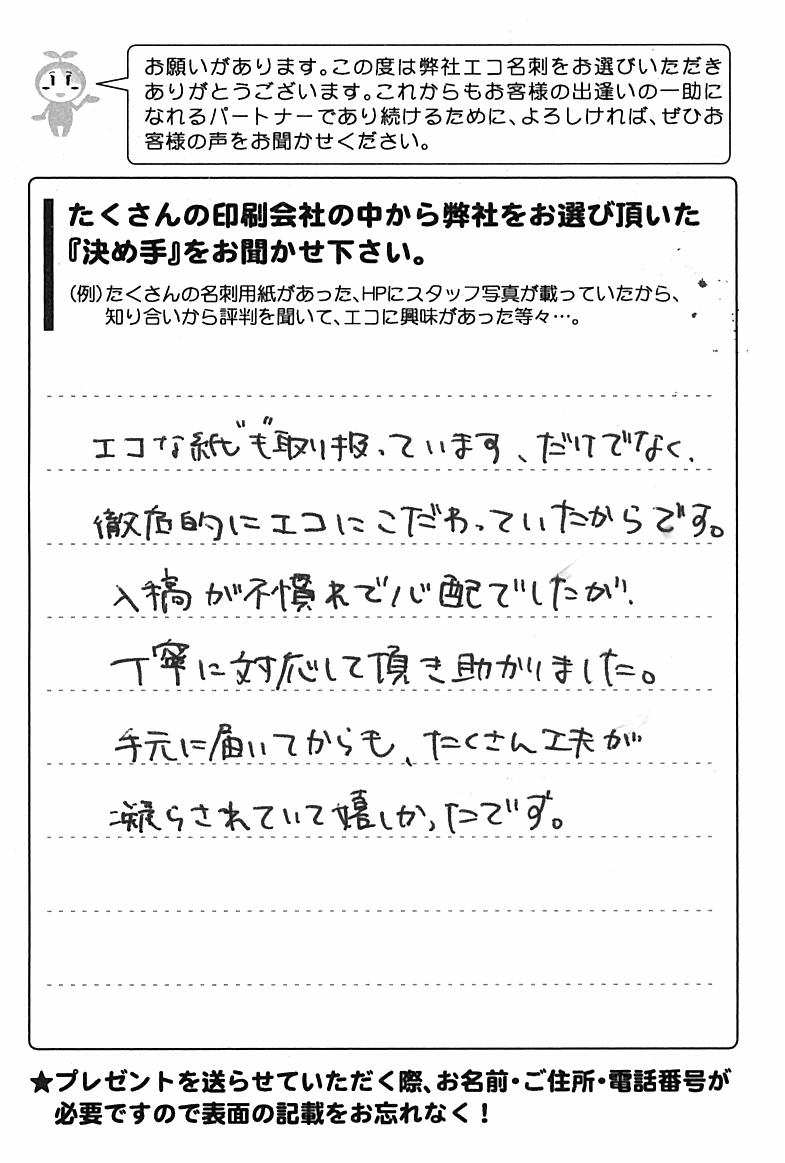 お願いがあります。この度は弊社エコ名刺をお選びいただき
ありがとうございます。これからもお客様の出逢いの一助に
なれるパートナーであり続けるために、よろしければ、ぜひお
客様の声をお聞かせください。
たくさんの印刷会社の中から弊社をお選び頂いた
『決め手』をお聞かせ下さい。
(例)たくさんの名刺用紙があった、HPにスタッフ写真が載っていたから、
知り合いから評判を聞いて、エコに興味があった等々…。
エコな紙"も"取り扱っています、だけでなく、
徹底的にエコにこだわっていたからです。
入稿が不慣れで心配でしたが、
丁寧に対応して頂き助かりました。
手元に届いてからも、たくさん工夫が
凝らされていて嬉しかったです。
★プレゼントを送らせていただく際、お名前・ご住所・電話番号が
必要ですので表面の記載をお忘れなく！